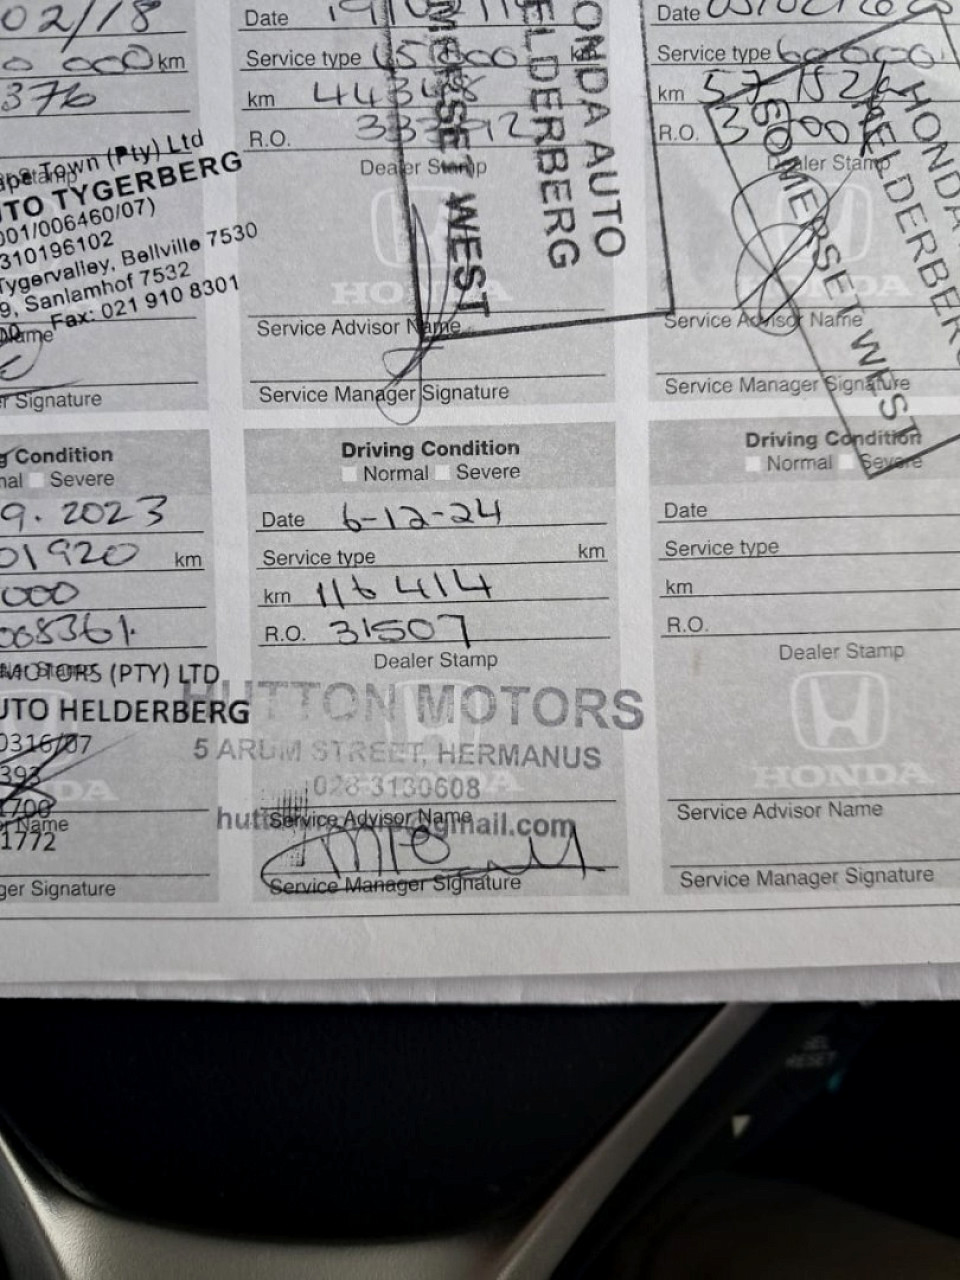 02/18
000 km
376
Cape Town (Pty) Ltd
UTO TYGERBERG
001/006460/07)
310196102
Tygervalley, Bellville 7530
9, Sanlamhof 7532
Fax: 021 910 8301
Name
r Signature
Date
Service type 45 000 km
km 44348
R.O.
Dealer Stamp
HONDA AUTO
HELDERBERG
SOMERSET WEST
HONDA
Service Advisor Name
Service Manager Signature
Date
Service type 60 000
km 57 152
R.O.
Dealer Stamp
HONDA
HELDERBERG
SOMERSET WEST
HONDA
Service Advisor Name
Service Manager Signature
g Condition
nal Severe
9.2023
01920 km
000
008361.
MOTORS (PTY) LTD
UTO HELDERBERG
0316/07
393
1700
r Name
1772
ger Signature
Driving Condition
Normal Severe
Date 6-12-24
Service type km
km 116 414
R.O. 31507
Dealer Stamp
HUTTON MOTORS
5 ARUM STREET, HERMANUS
028-3130608
gmail.com
Service Advisor Name
Service Manager Signature
Driving Condition
Normal Severe
Date
Service type
km
R.O.
Dealer Stamp
HONDA
Service Advisor Name
Service Manager Signature
SEL
RESET